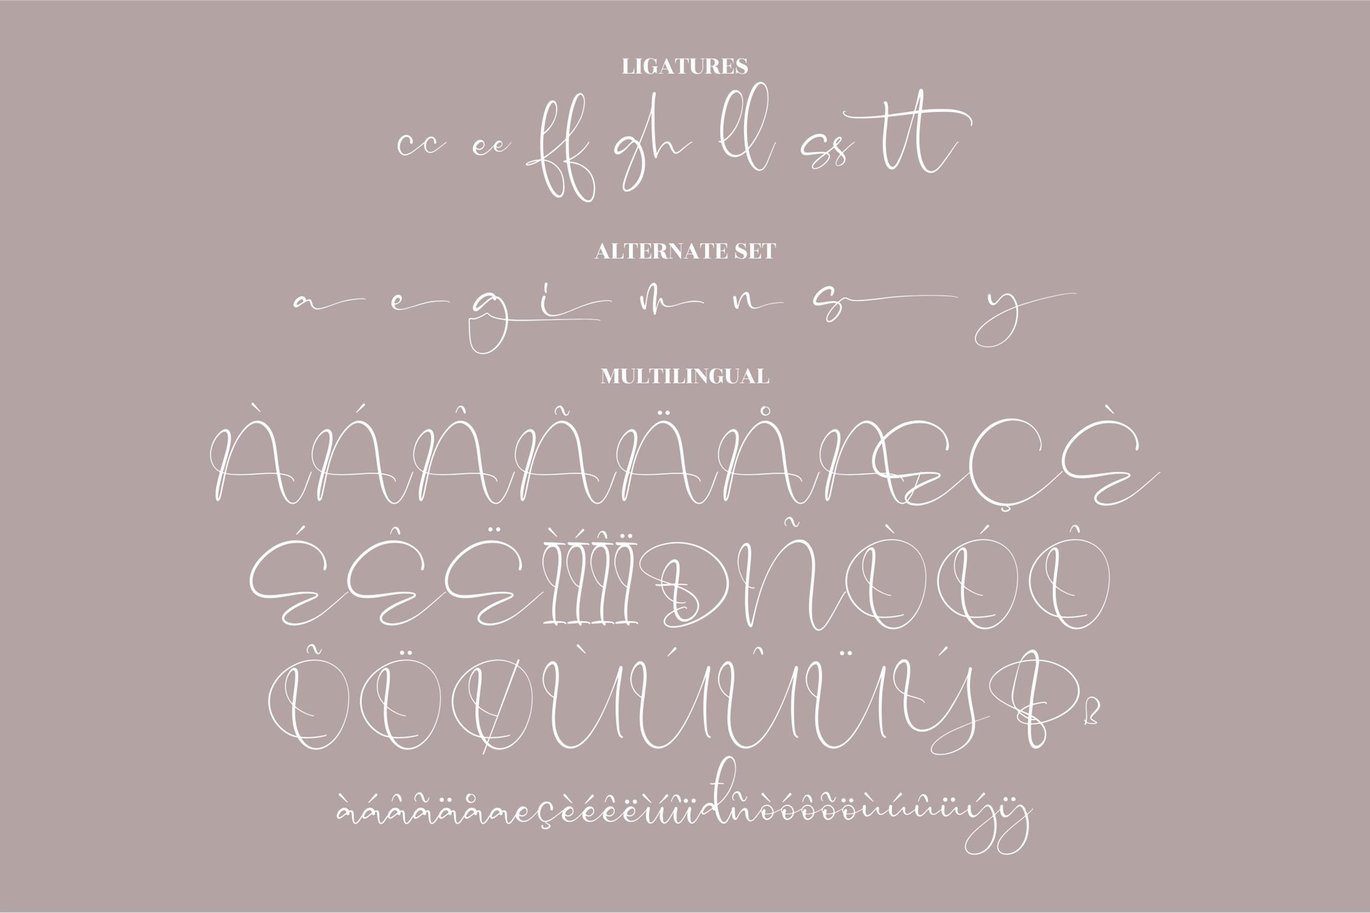 LIGATURES
cc ee ff gh ll ss tt
ALTERNATE SET
a e g i m n s y
MULTILINGUAL
ÀÁÂÃÄÅÆÇÈ
ÉÊËÌÍÎÏÐÑÒÓÔ
ÕÖØÙÚÛÜÝÞß
àáâãäåæçèéêëìíîïđñòóôõöùúûüýÿ